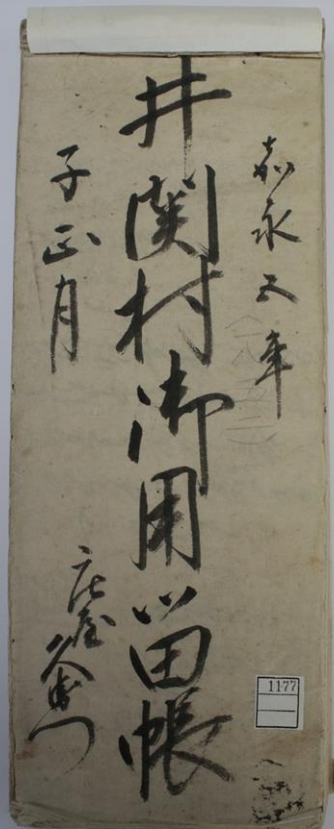 嘉永五年
井関村御用留帳
子正月
庄屋
1177